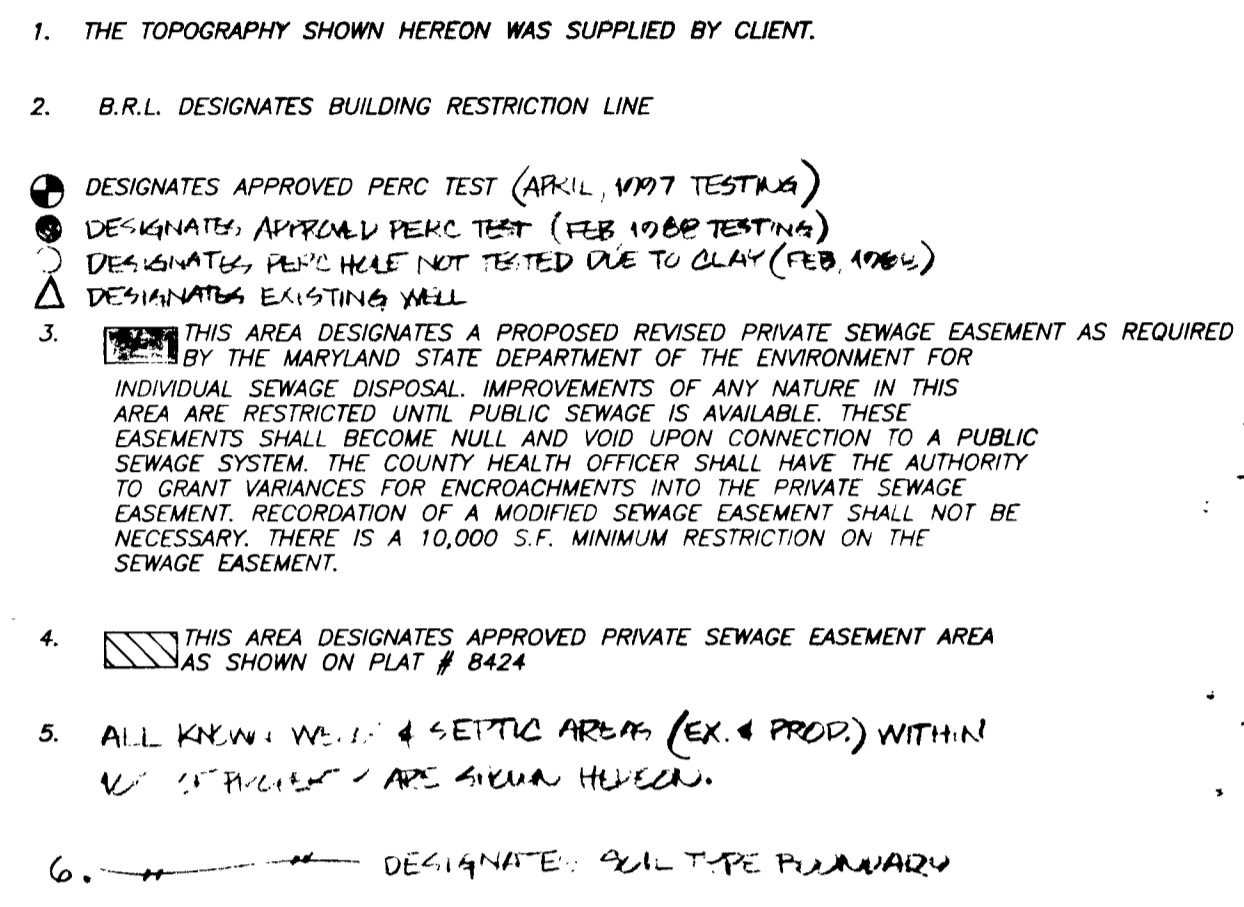 1. THE TOPOGRAPHY SHOWN HEREON WAS SUPPLIED BY CLIENT.
2. B.R.L. DESIGNATES BUILDING RESTRICTION LINE
DESIGNATES APPROVED PERC TEST (APRIL, 1997 TESTING)
DESIGNATES APPROVED PERC TEST (FEB 1988 TESTING)
DESIGNATES PERC HOLE NOT TESTED DUE TO CLAY (FEB.
DESIGNATES EXISTING WELL
3. THIS AREA DESIGNATES A PROPOSED REVISED PRIVATE SEWAGE EASEMENT AS REQUIRED
BY THE MARYLAND STATE DEPARTMENT OF THE ENVIRONMENT FOR
INDIVIDUAL SEWAGE DISPOSAL. IMPROVEMENTS OF ANY NATURE IN THIS
AREA ARE RESTRICTED UNTIL PUBLIC SEWAGE IS AVAILABLE. THESE
EASEMENTS SHALL BECOME NULL AND VOID UPON CONNECTION TO A PUBLIC
SEWAGE SYSTEM. THE COUNTY HEALTH OFFICER SHALL HAVE THE AUTHORITY
TO GRANT VARIANCES FOR ENCROACHMENTS INTO THE PRIVATE SEWAGE
EASEMENT. RECORDATION OF A MODIFIED SEWAGE EASEMENT SHALL NOT BE
NECESSARY. THERE IS A 10,000 S.F. MINIMUM RESTRICTION ON THE
SEWAGE EASEMENT.
4. THIS AREA DESIGNATES APPROVED PRIVATE SEWAGE EASEMENT AREA
AS SHOWN ON PLAT # 8424
5. ALL KNOWN WELL & SEPTIC AREAS (EX. & PROP.) WITHIN
ARE SHOWN HEREON.
6. DESIGNATES SOIL TYPE BOUNDARY